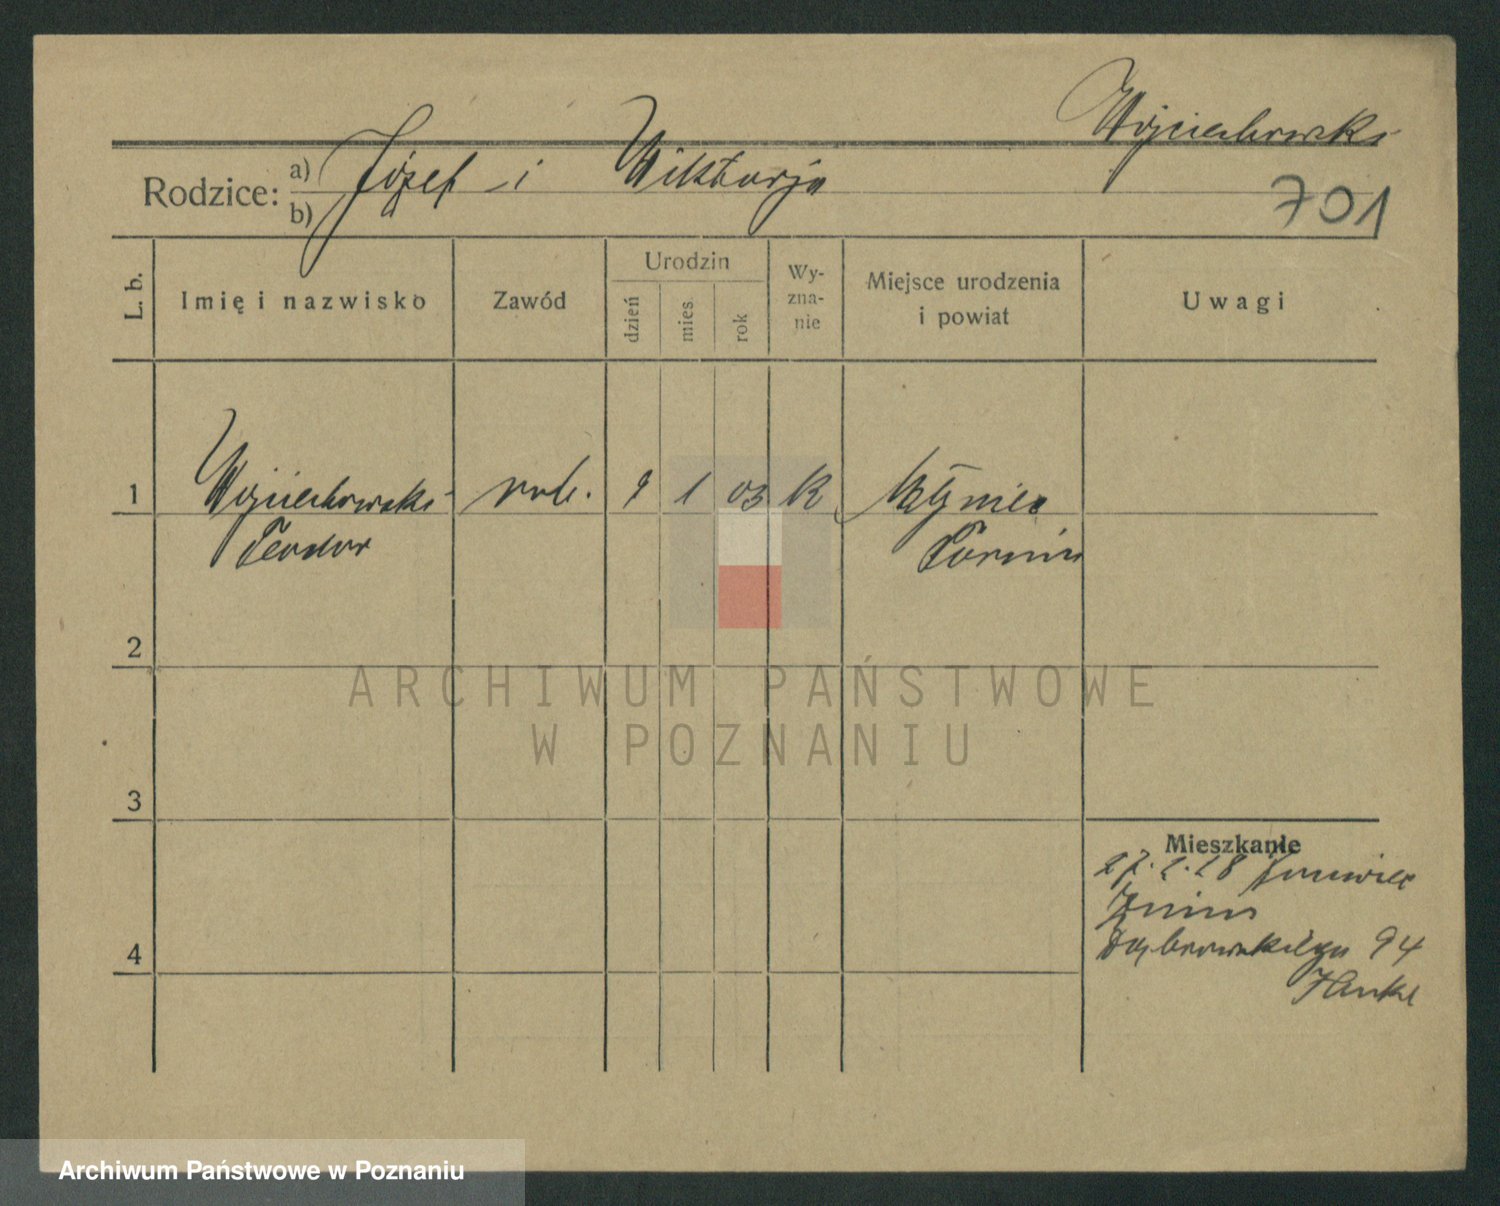 Wojciechowski
Rodzice: a) Józef i Wiktorja
b)
701
L. b.
Imię i nazwisko
Zawód
Urodzin
dzień
mies
rok
Wy-
zna-
nie
Miejsce urodzenia
i powiat
Uwagi
1 Wojciechowski rob. 9 1 03 K Młyniec
Teodor Toruń
2
3
4
Mieszkanie
Żnin
Dąbrowskiego 94
ARCHIWUM PAŃSTWOWE
W POZNANIU
Archiwum Państwowe w Poznaniu